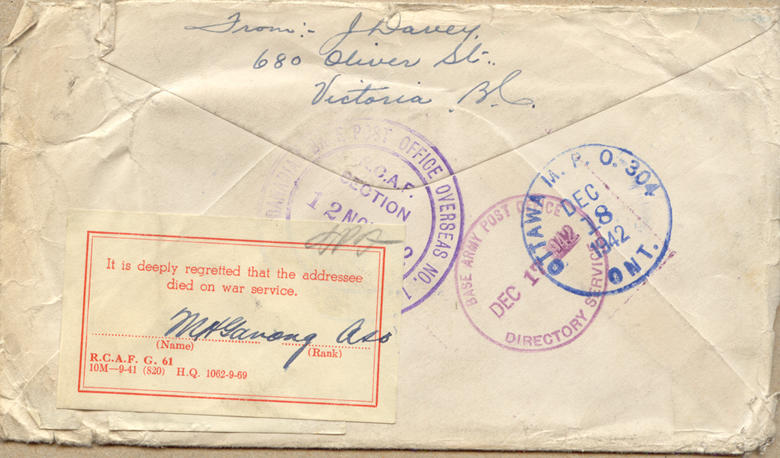 From:- J Davey
680 Oliver St.
Victoria B.C.
POST OFFICE OVERSEAS NO. 1
R.C.A.F.
SECTION
12 NO
OTTAWA M. P. O. 304
DEC
8
1942
ONT.
BASE ARMY POST OFFICE
DEC 1
DIRECTORY SERVICE
It is deeply regretted that the addressee
died on war service.
(Name) (Rank)
R.C.A.F. G. 61
10M—9-41 (820) H.Q. 1062-9-69